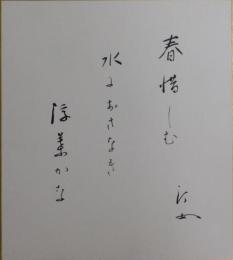 春惜しむ
水におさなき
浮葉かな
汀女